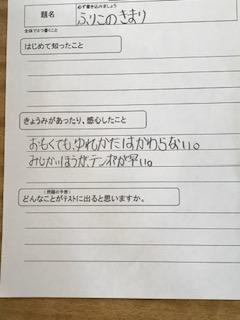 必ず書き込みましょう
題名
ふりこのきまり
全体で3つ書くこと
はじめて知ったこと
きょうみがあったり、感心したこと
おもくても、ゆれかたはかわらない。
みじかいほうが、テンポが早い。
(問題の予想)
どんなことがテストに出ると思いますか。